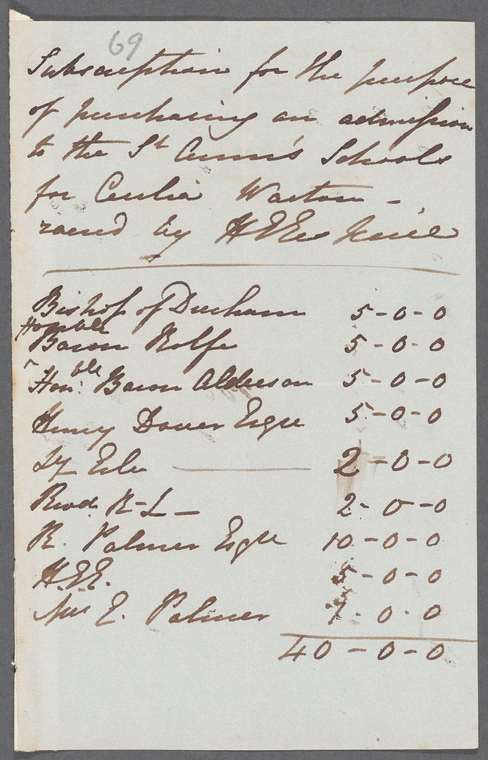 69
Subscription for the purpose
of purchasing an admission
to the St Ann's Schools
for Cecilia Warton -
raised by H E E
Bishop of Durham 5-0-0
Honble
Baron Rolfe 5-0-0
Honble Baron Alderson 5-0-0
Henry Dover Esqre 5-0-0
Ly Erle 2-0-0
Revd R-L- 2-0-0
R. Palmer Esqre 10-0-0
H.E.E. 5-0-0
Mrs E. Palmer 1-0-0
40-0-0